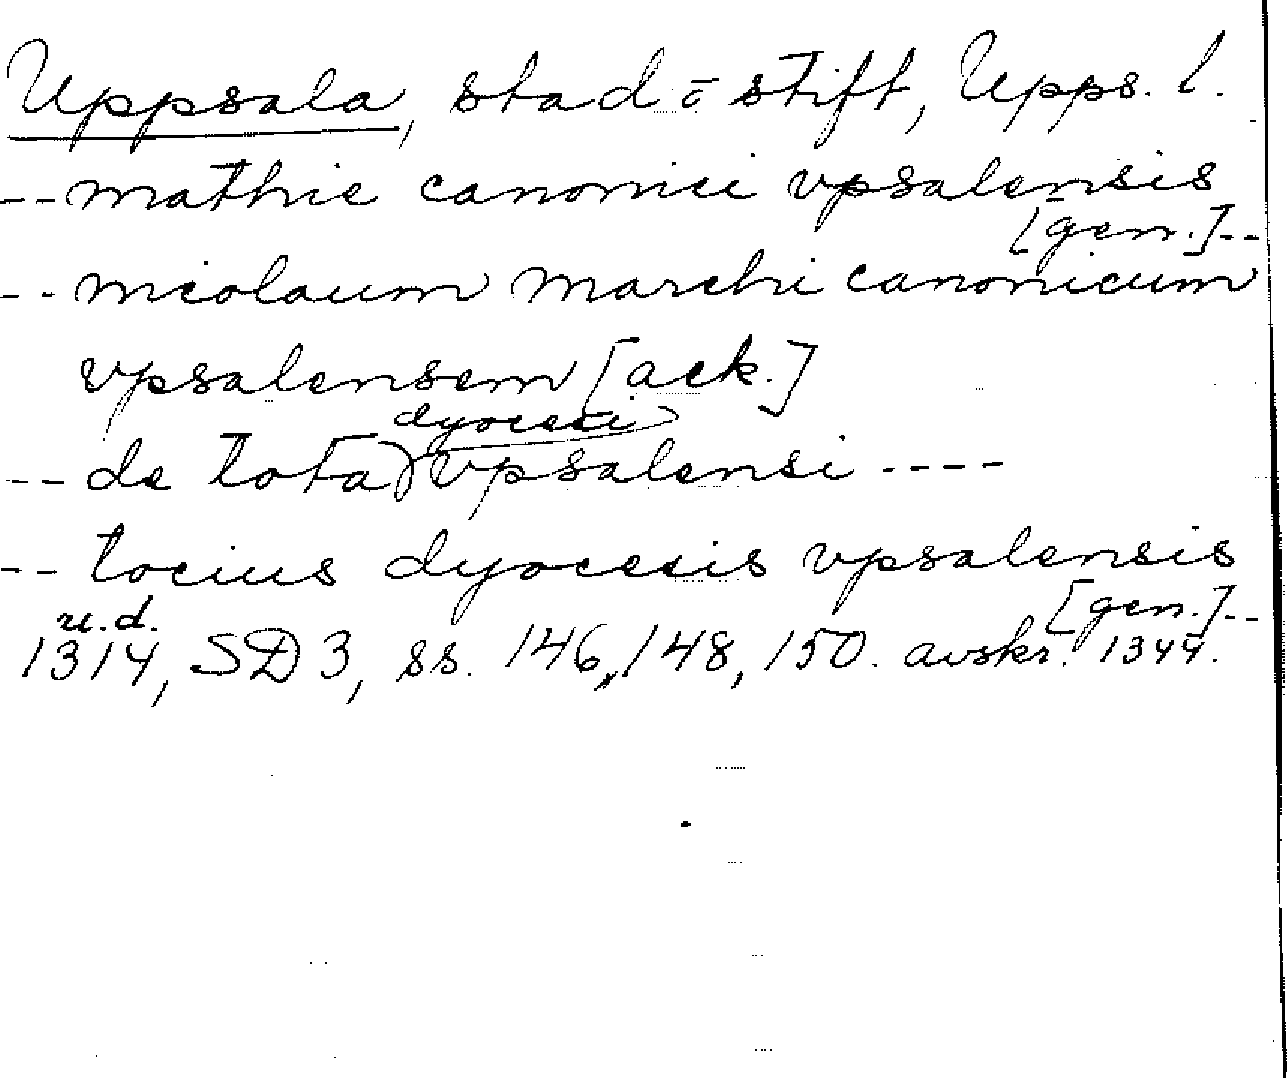 Uppsala, stad o stift, Upps. l.
-- mathie canonici vpsalensis
[gen.]--
-- nicolaum marchi canonicum
vpsalensem [ack.]
dyocesi
-- de tota vpsalensi ----
-- tocius dyocesis vpsalensis
[gen.]--
u.d.
1314, SD 3, ss. 146, 148, 150. avskr. 1344.